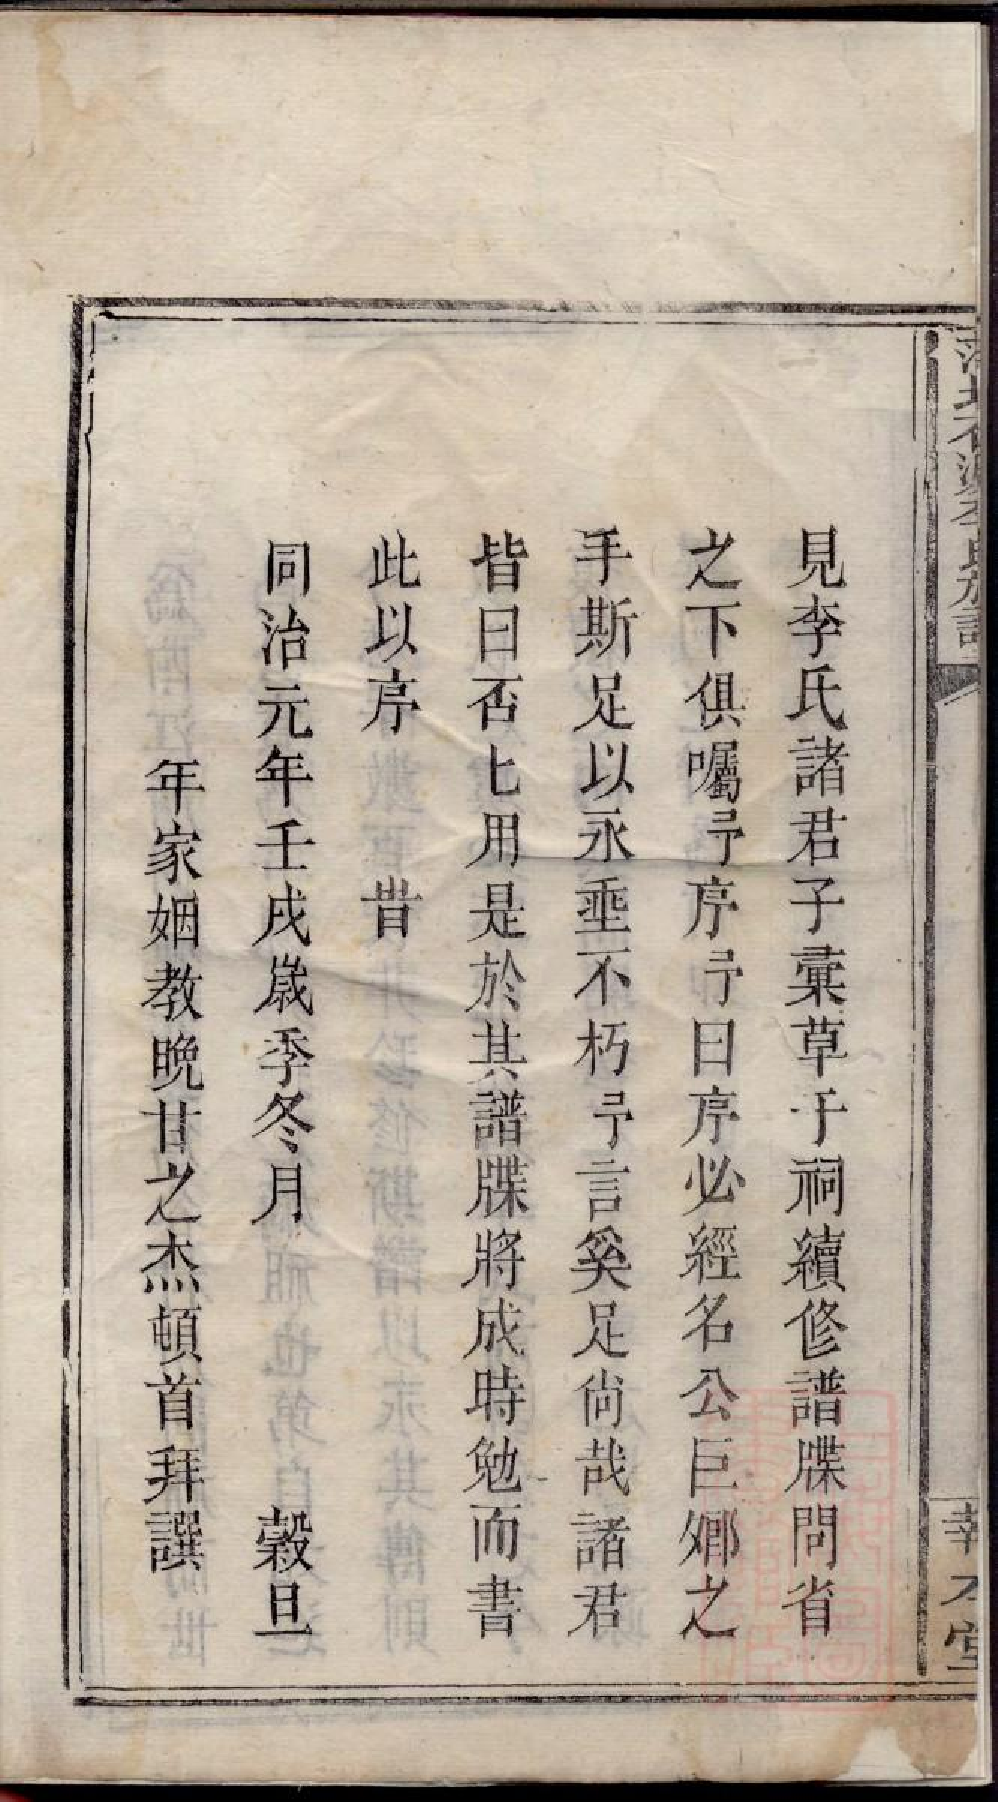 見李氏諸君子彙草于祠續修譜牒問省
之下俱囑予序予曰序必經名公巨鄉之
手斯足以永垂不朽予言奚足尚哉諸君
皆曰否匕用是於其譜牒將成時勉而書
此以序　　昔
同治元年壬戌嵗季冬月　　　　榖旦
年家姻教晚甘之杰頓首拜譔